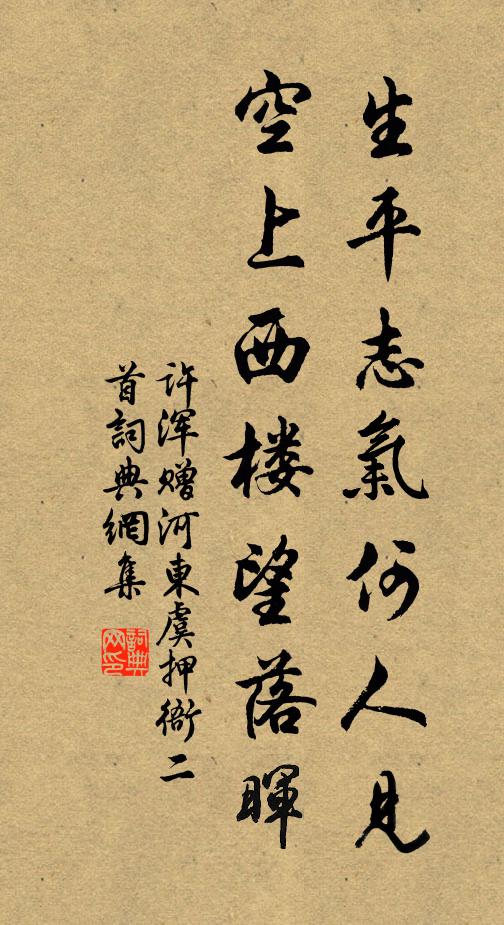 生平志氣何人見
空上西楼望落暉
许浑赠河東虞押衙二
首詞典網集
詞典網印